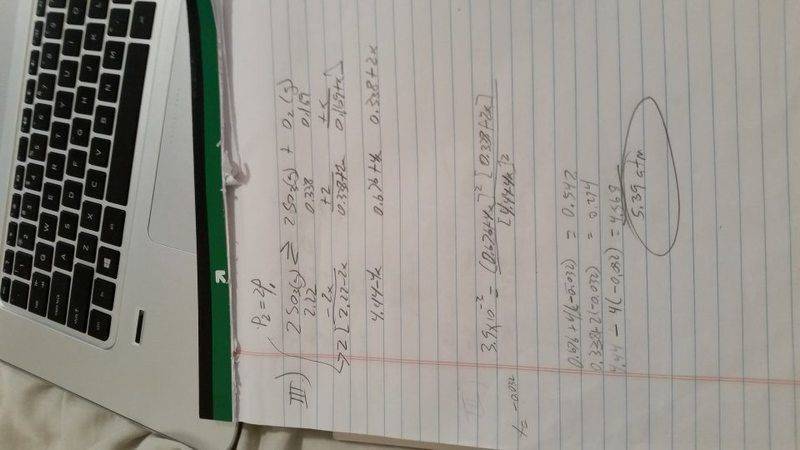 III) P₂=2P₁
2SO₃(g) ⇌ 2SO₂(g) + O₂(g)
2.22 0.338 0.169
-2x +2 +x
2[2.22-2x 0.338+2x 0.169+x]
4.44-4x 0.676+4x 0.338+2x
3.9x10⁻² = [0.676+4x]² [0.338+2x]
[4.44-4x]²
x= -0.032
0.676+4(-0.032) = 0.542
0.338+2(-0.032) = 0.274
4.44 - 4(-0.032) = 4.568
5.39 atm